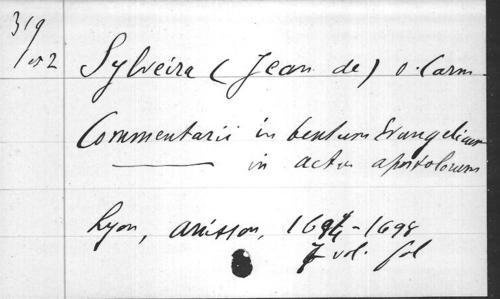 319
/052
Sylveira (Jean de) o. Carm.
Commentarii in textum Evangelicum
in actus apostolorum
Lyon, anisson, 1697-1698
7 vol. fol